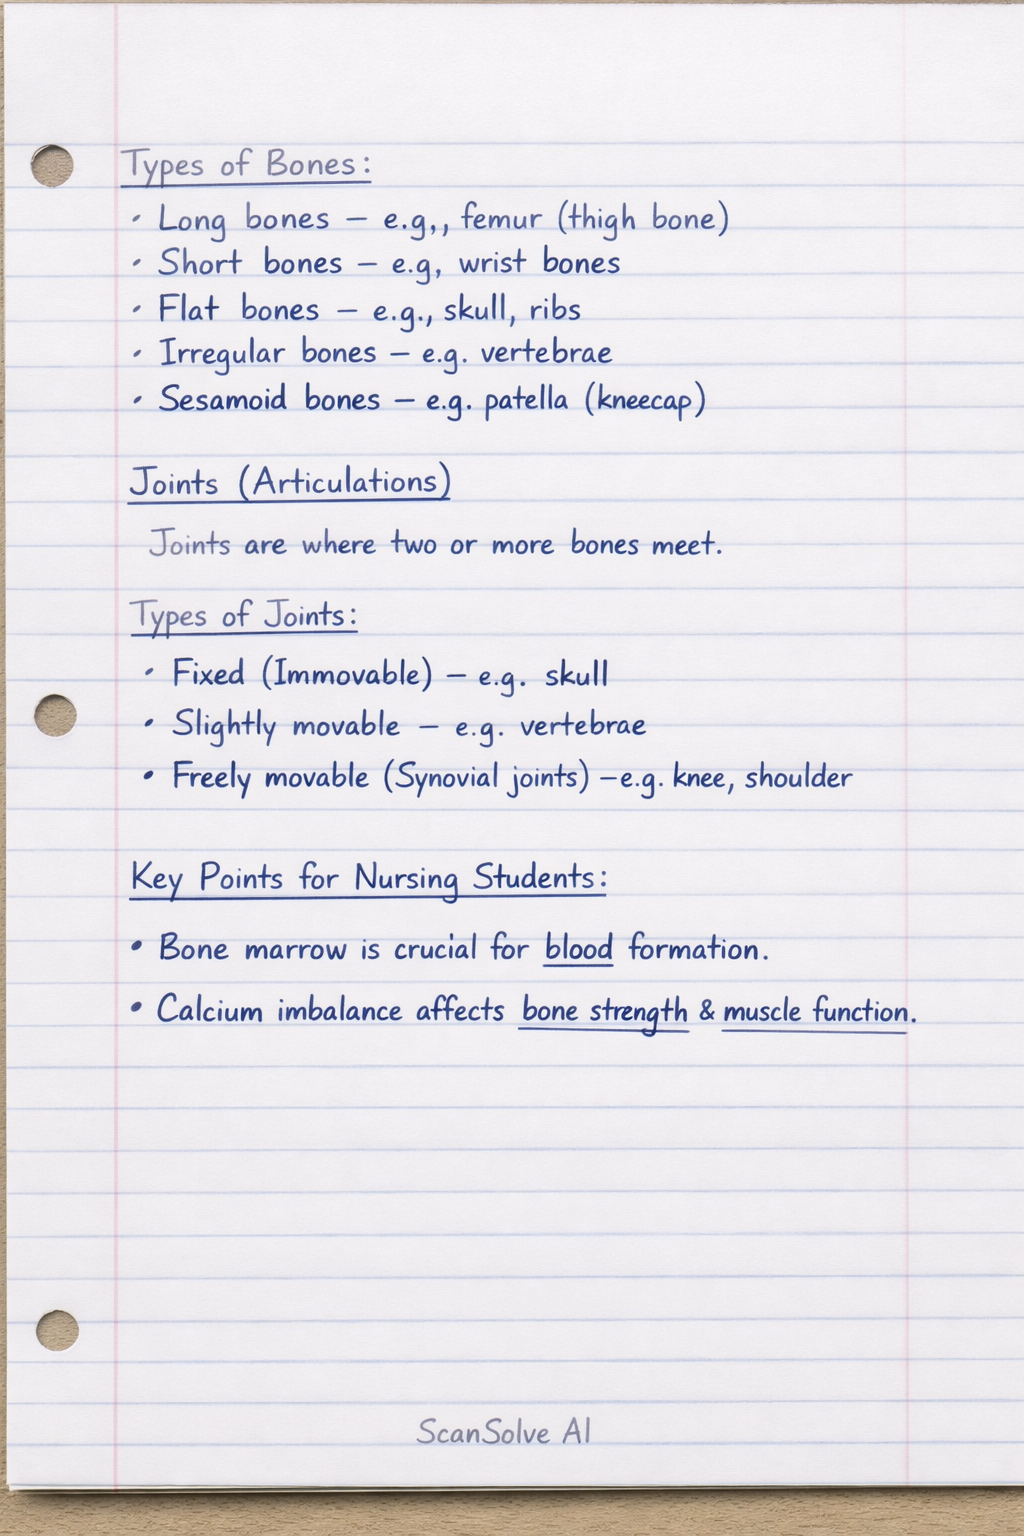 Types of Bones:
· Long bones – e.g,, femur (thigh bone)
· Short bones – e.g, wrist bones
· Flat bones – e.g., skull, ribs
· Irregular bones – e.g. vertebrae
· Sesamoid bones – e.g. patella (kneecap)
Joints (Articulations)
Joints are where two or more bones meet.
Types of Joints:
· Fixed (Immovable) – e.g. skull
· Slightly movable – e.g. vertebrae
• Freely movable (Synovial joints) –e.g. knee, shoulder
Key Points for Nursing Students:
• Bone marrow is crucial for blood formation.
• Calcium imbalance affects bone strength & muscle function.
ScanSolve AI